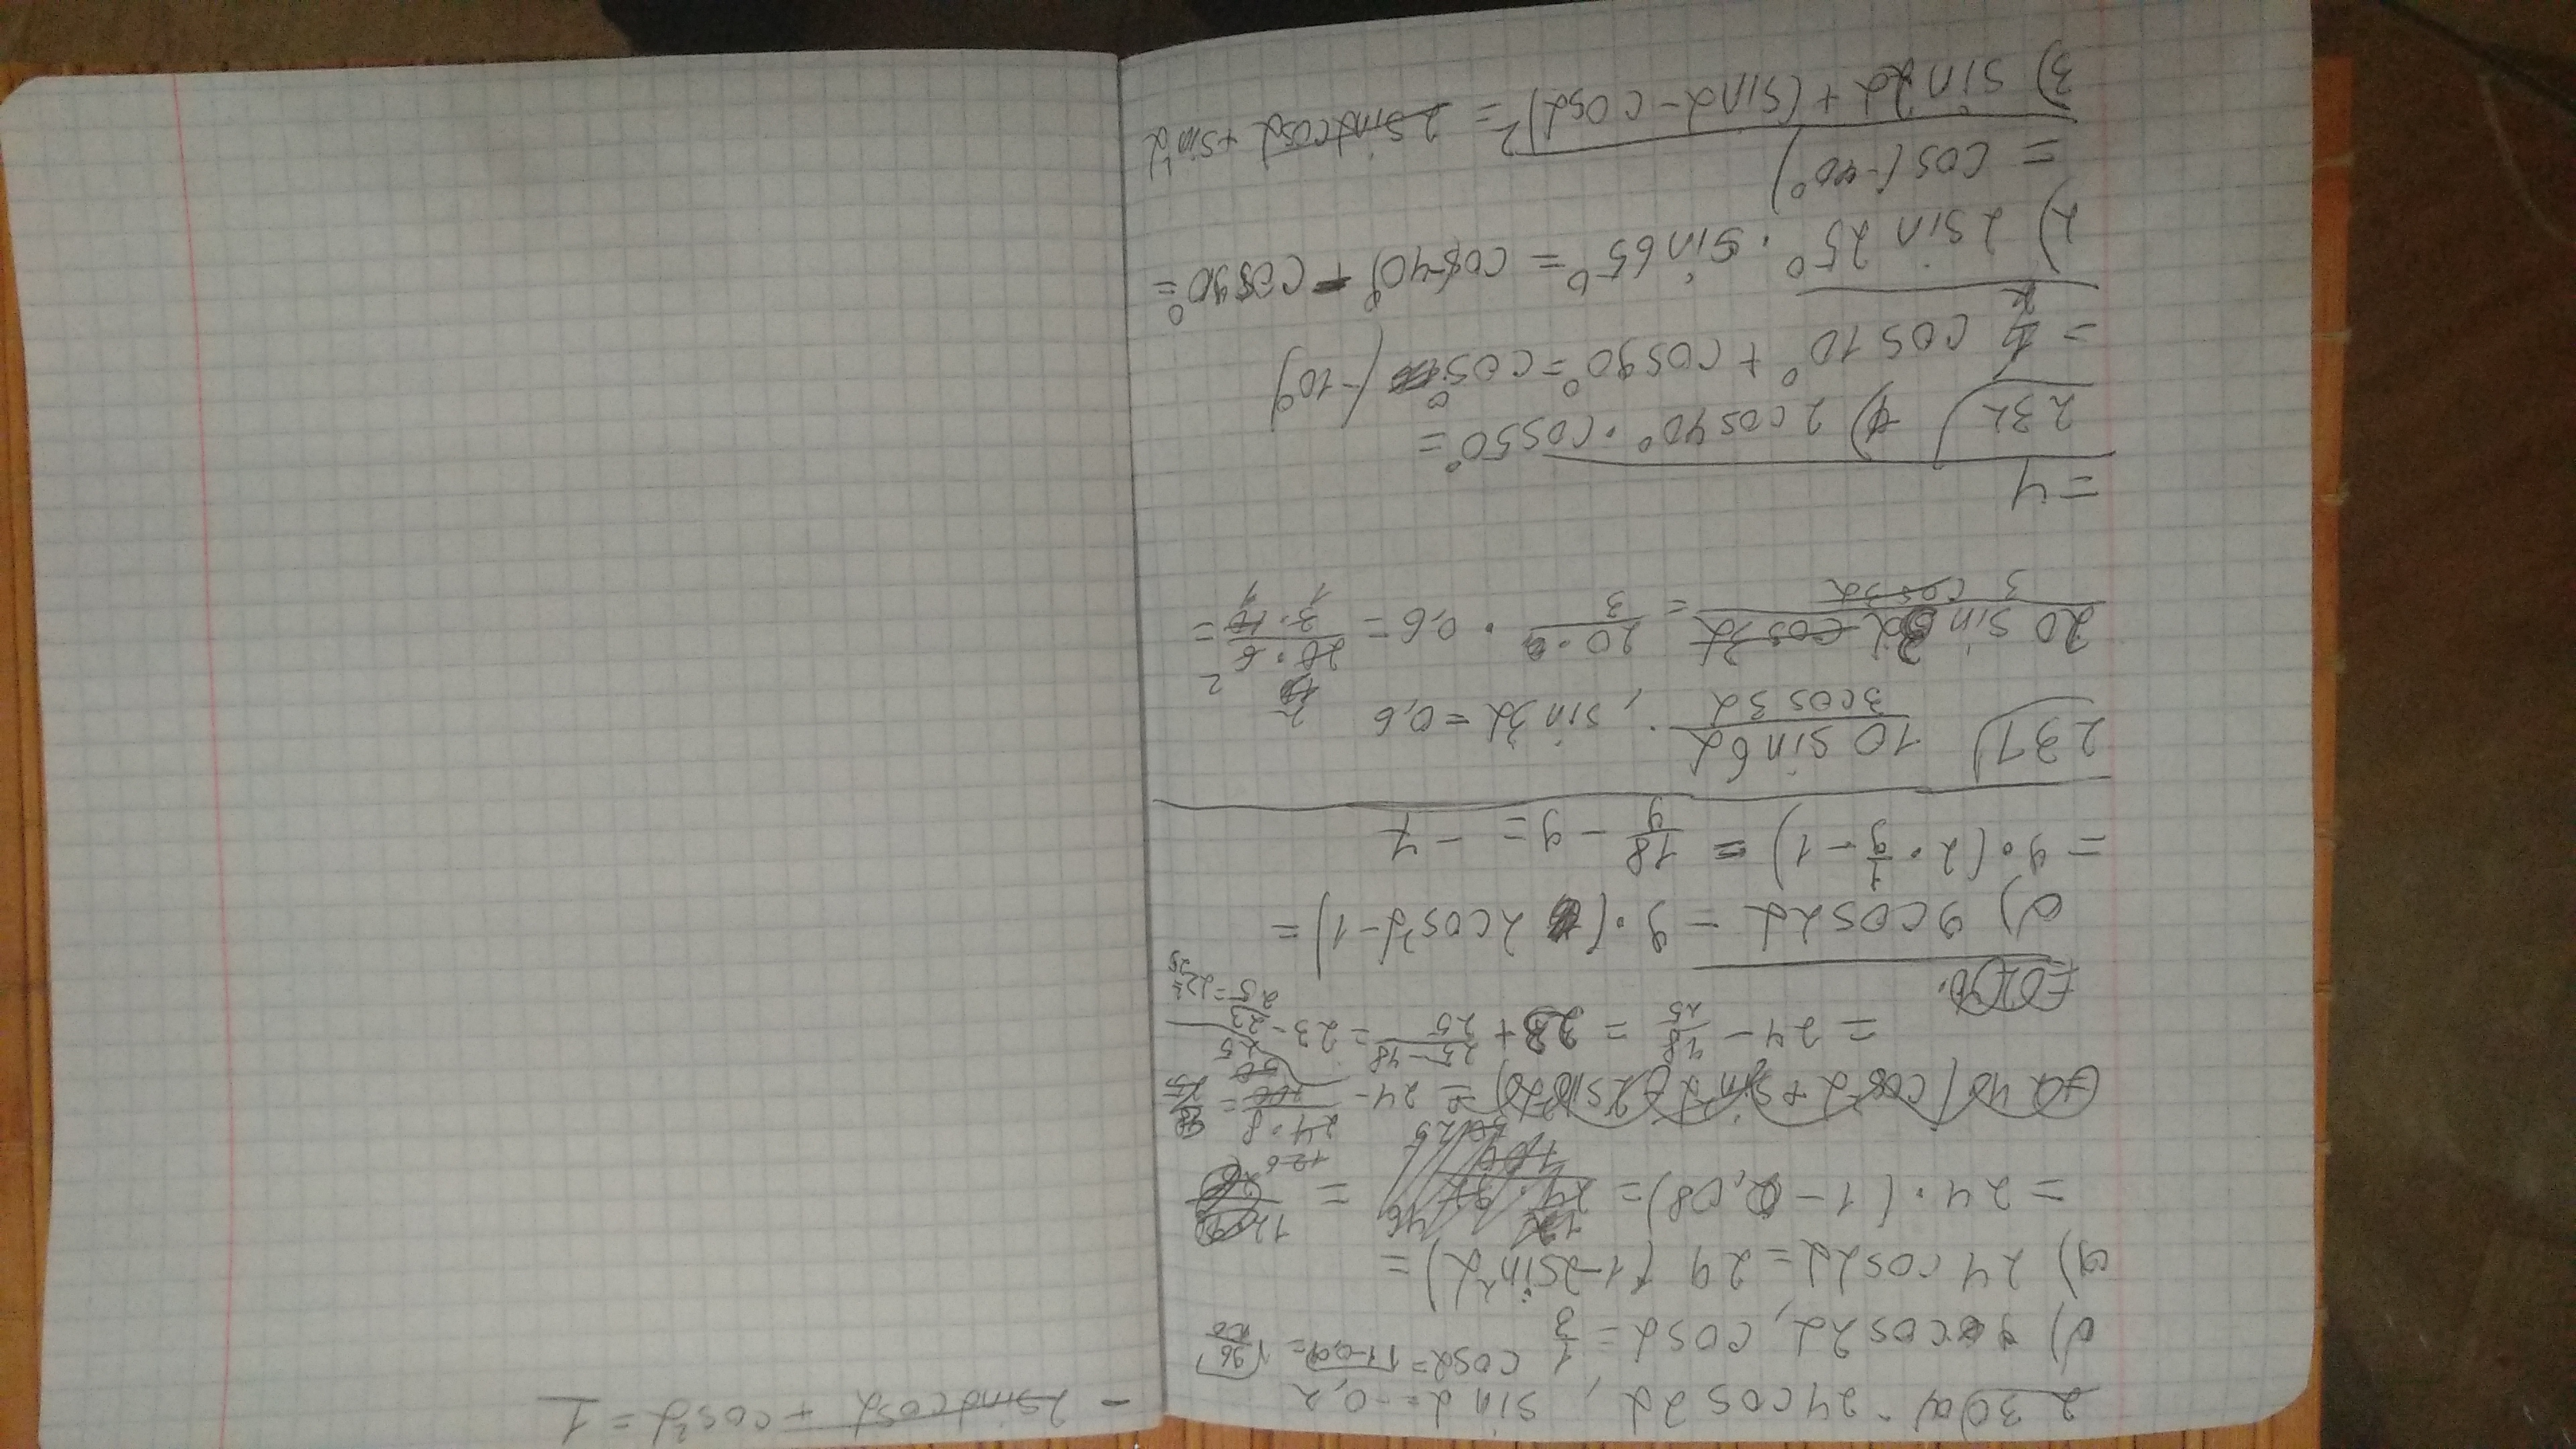 230a) 24cos2α, sinα=-0,2
б) 9cos2α, cosα=1/3 cosα=√1-0,04=√96/100
а) 24cos2α=24(1-2sin²α)=
=24·(1-0,08)=
=24-24·8/100=
=24-48/25=23+25-48/25=23-23/25=22 2/25
б) 9cos2α=9·(2cos²α-1)=
=9·(2·1/9-1)=18/9-9=-7
231) 10sin6α/3cos3α, sin3α=0,6
20sin3αcos3α/3cos3α=20/3·0,6=20·6/3·10=
=4
232) 1) 2cos40°·cos50°=
=cos10°+cos90°=cos(-10°)
2) 2sin25°·sin65°=cos(-40°)-cos90°=
=cos(-40°)
3) sin2α+(sinα-cosα)²=2sinαcosα+sin²α
-2sinαcosα+cos²α=1